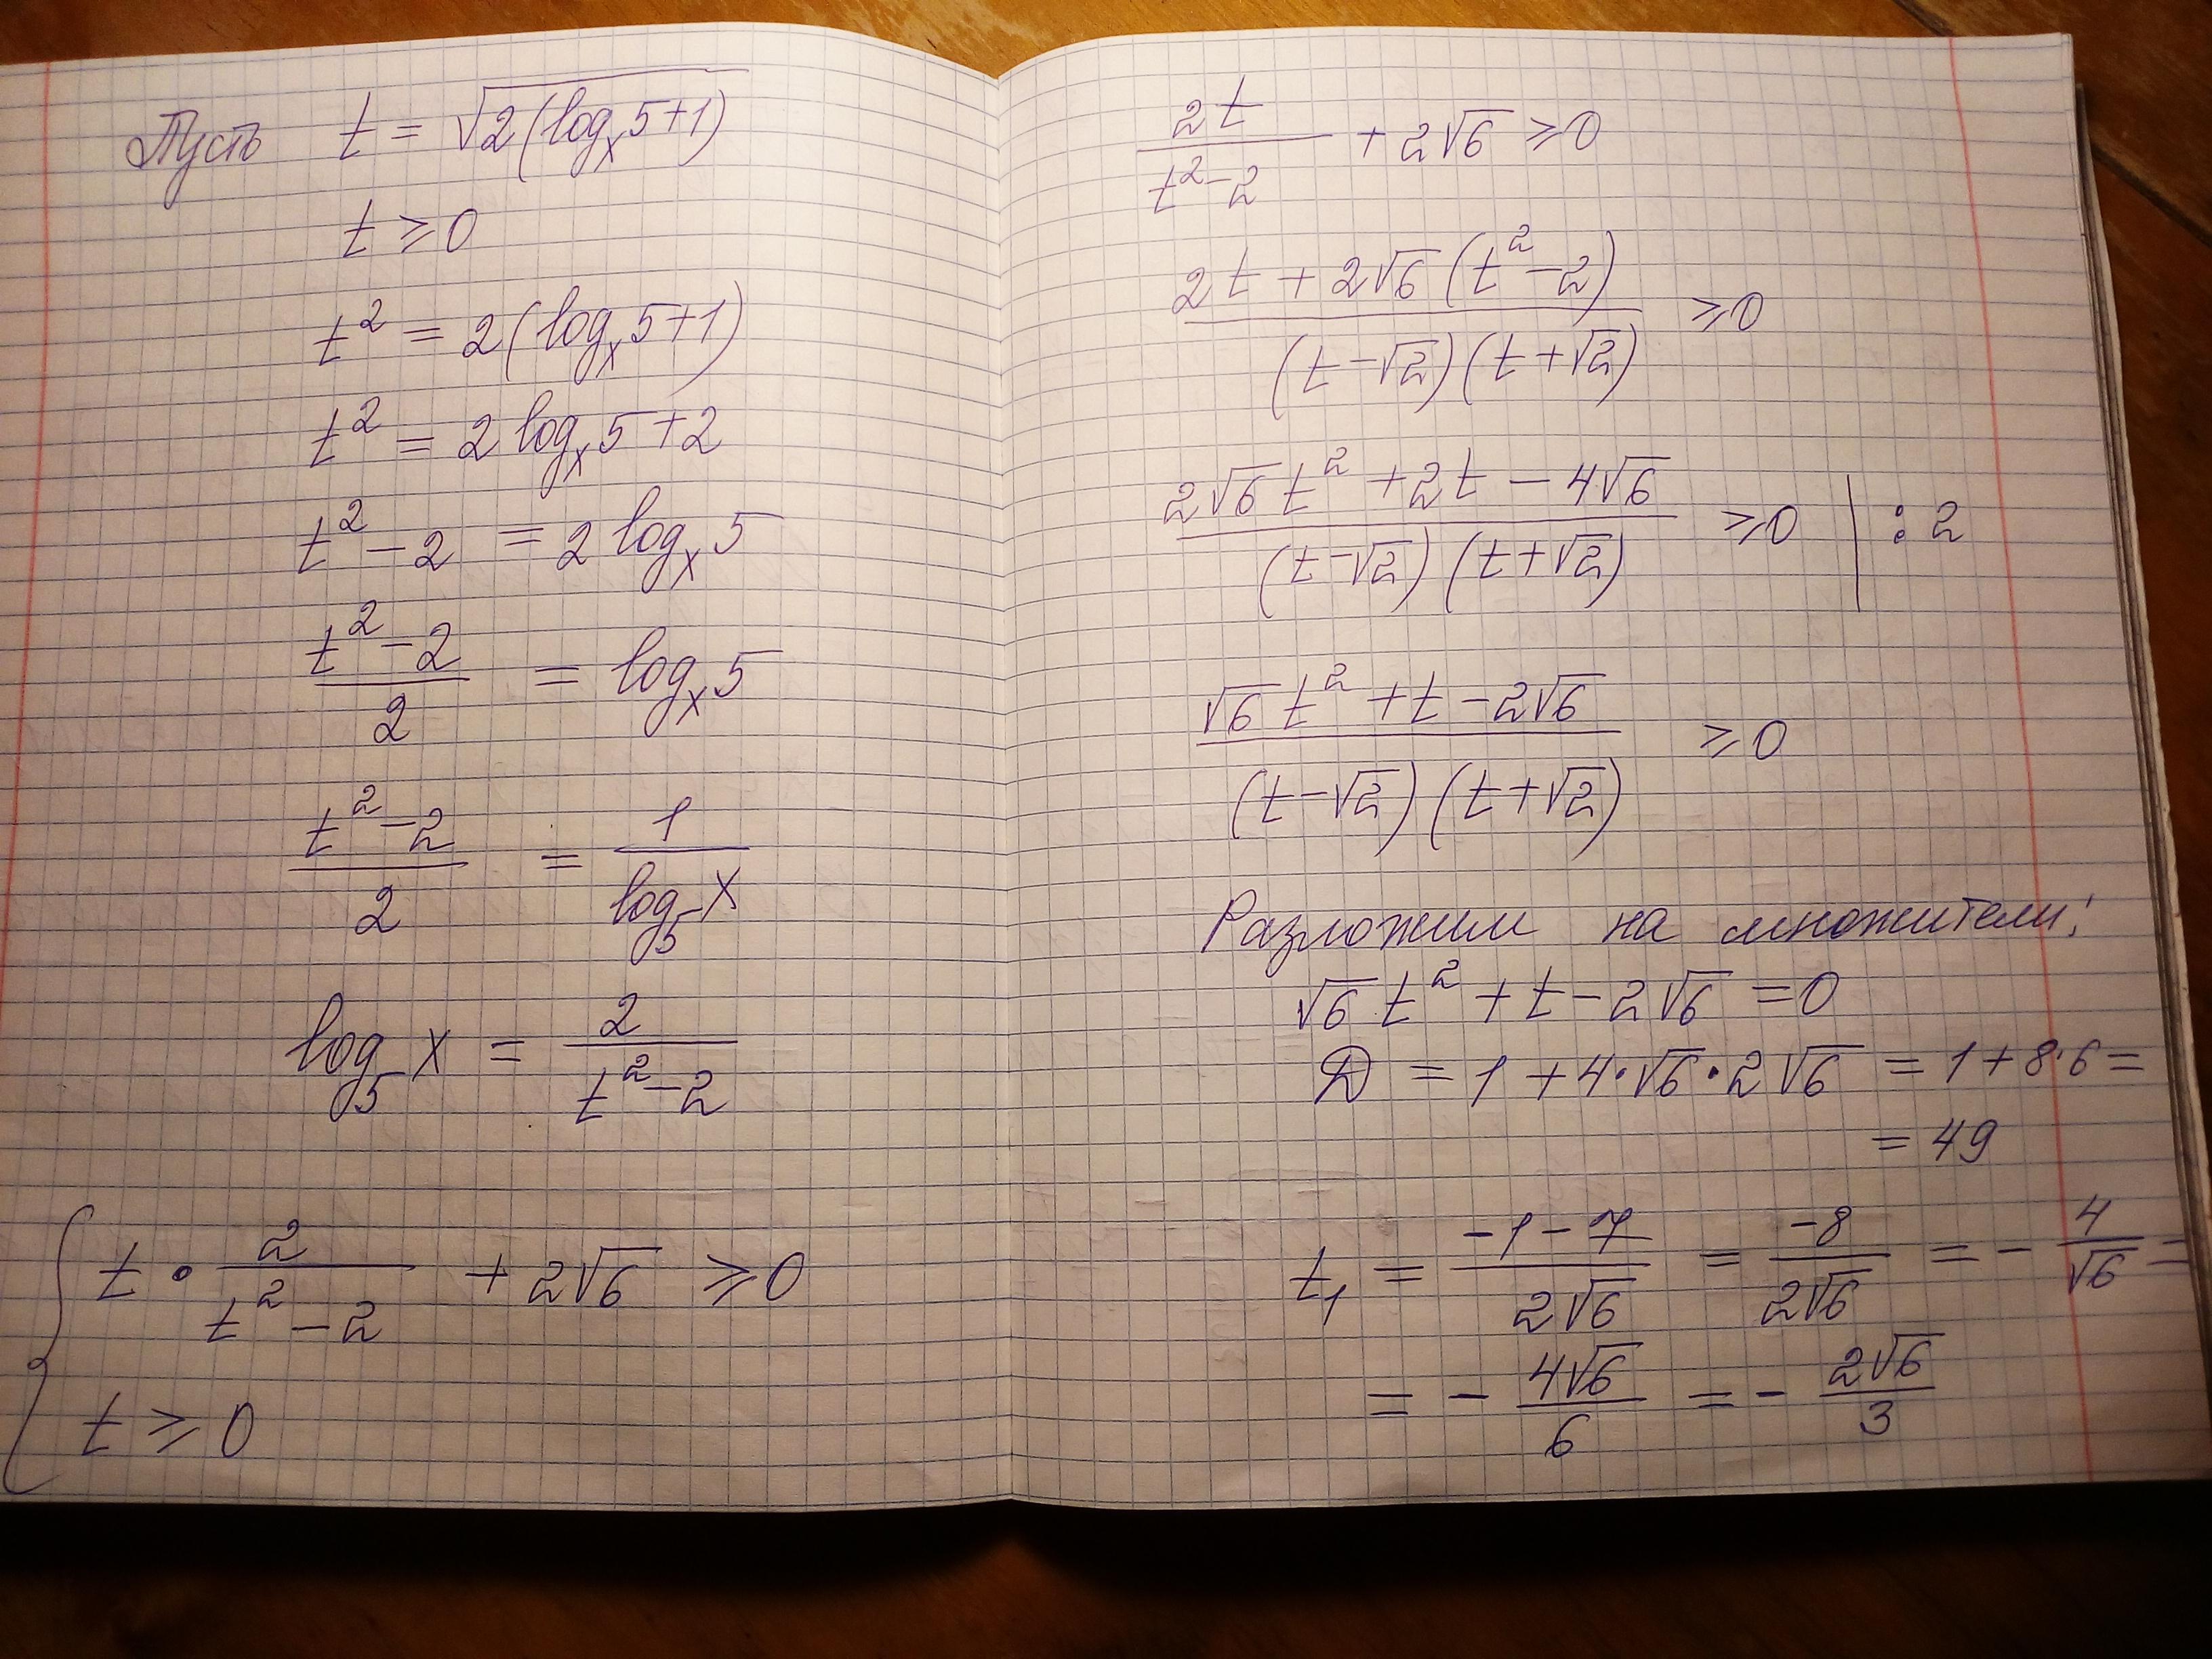 Пусть t = √(2(logₓ5+1))
t ⩾ 0
t² = 2(logₓ5+1)
t² = 2logₓ5+2
t² − 2 = 2logₓ5
(t² − 2)/2 = logₓ5
(t² − 2)/2 = 1/(log₅x)
log₅x = 2/(t² − 2)
{ t · 2/(t² − 2) + 2√6 ⩾ 0
t ⩾ 0
2t/(t² − 2) + 2√6 ⩾ 0
(2t + 2√6(t² − 2))/((t − √2)(t + √2)) ⩾ 0
(2√6t² + 2t − 4√6)/((t − √2)(t + √2)) ⩾ 0 | : 2
(√6t² + t − 2√6)/((t − √2)(t + √2)) ⩾ 0
Разложим на множители:
√6t² + t − 2√6 = 0
D = 1 + 4·√6·2√6 = 1 + 8·6 =
= 49
t₁ = (−1 − 7)/(2√6) = −8/(2√6) = − 4/√6 =
= − 4√6/6 = − 2√6/3